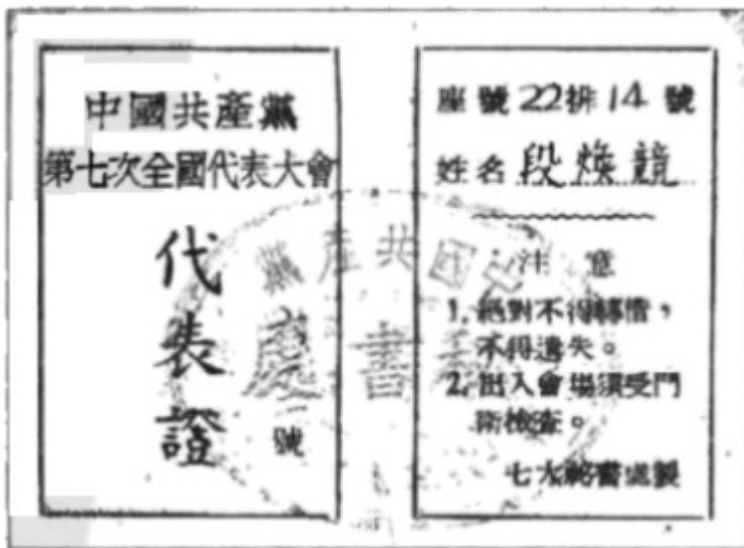 中國共產黨
第七次全國代表大會
代
表
證
號
座號22排14號
姓名 段焕競
注意
1. 絕對不得轉借，
不得遺失。
2. 出入會場須受門
衛檢查。
七大秘書處製
中國共產黨
秘書處